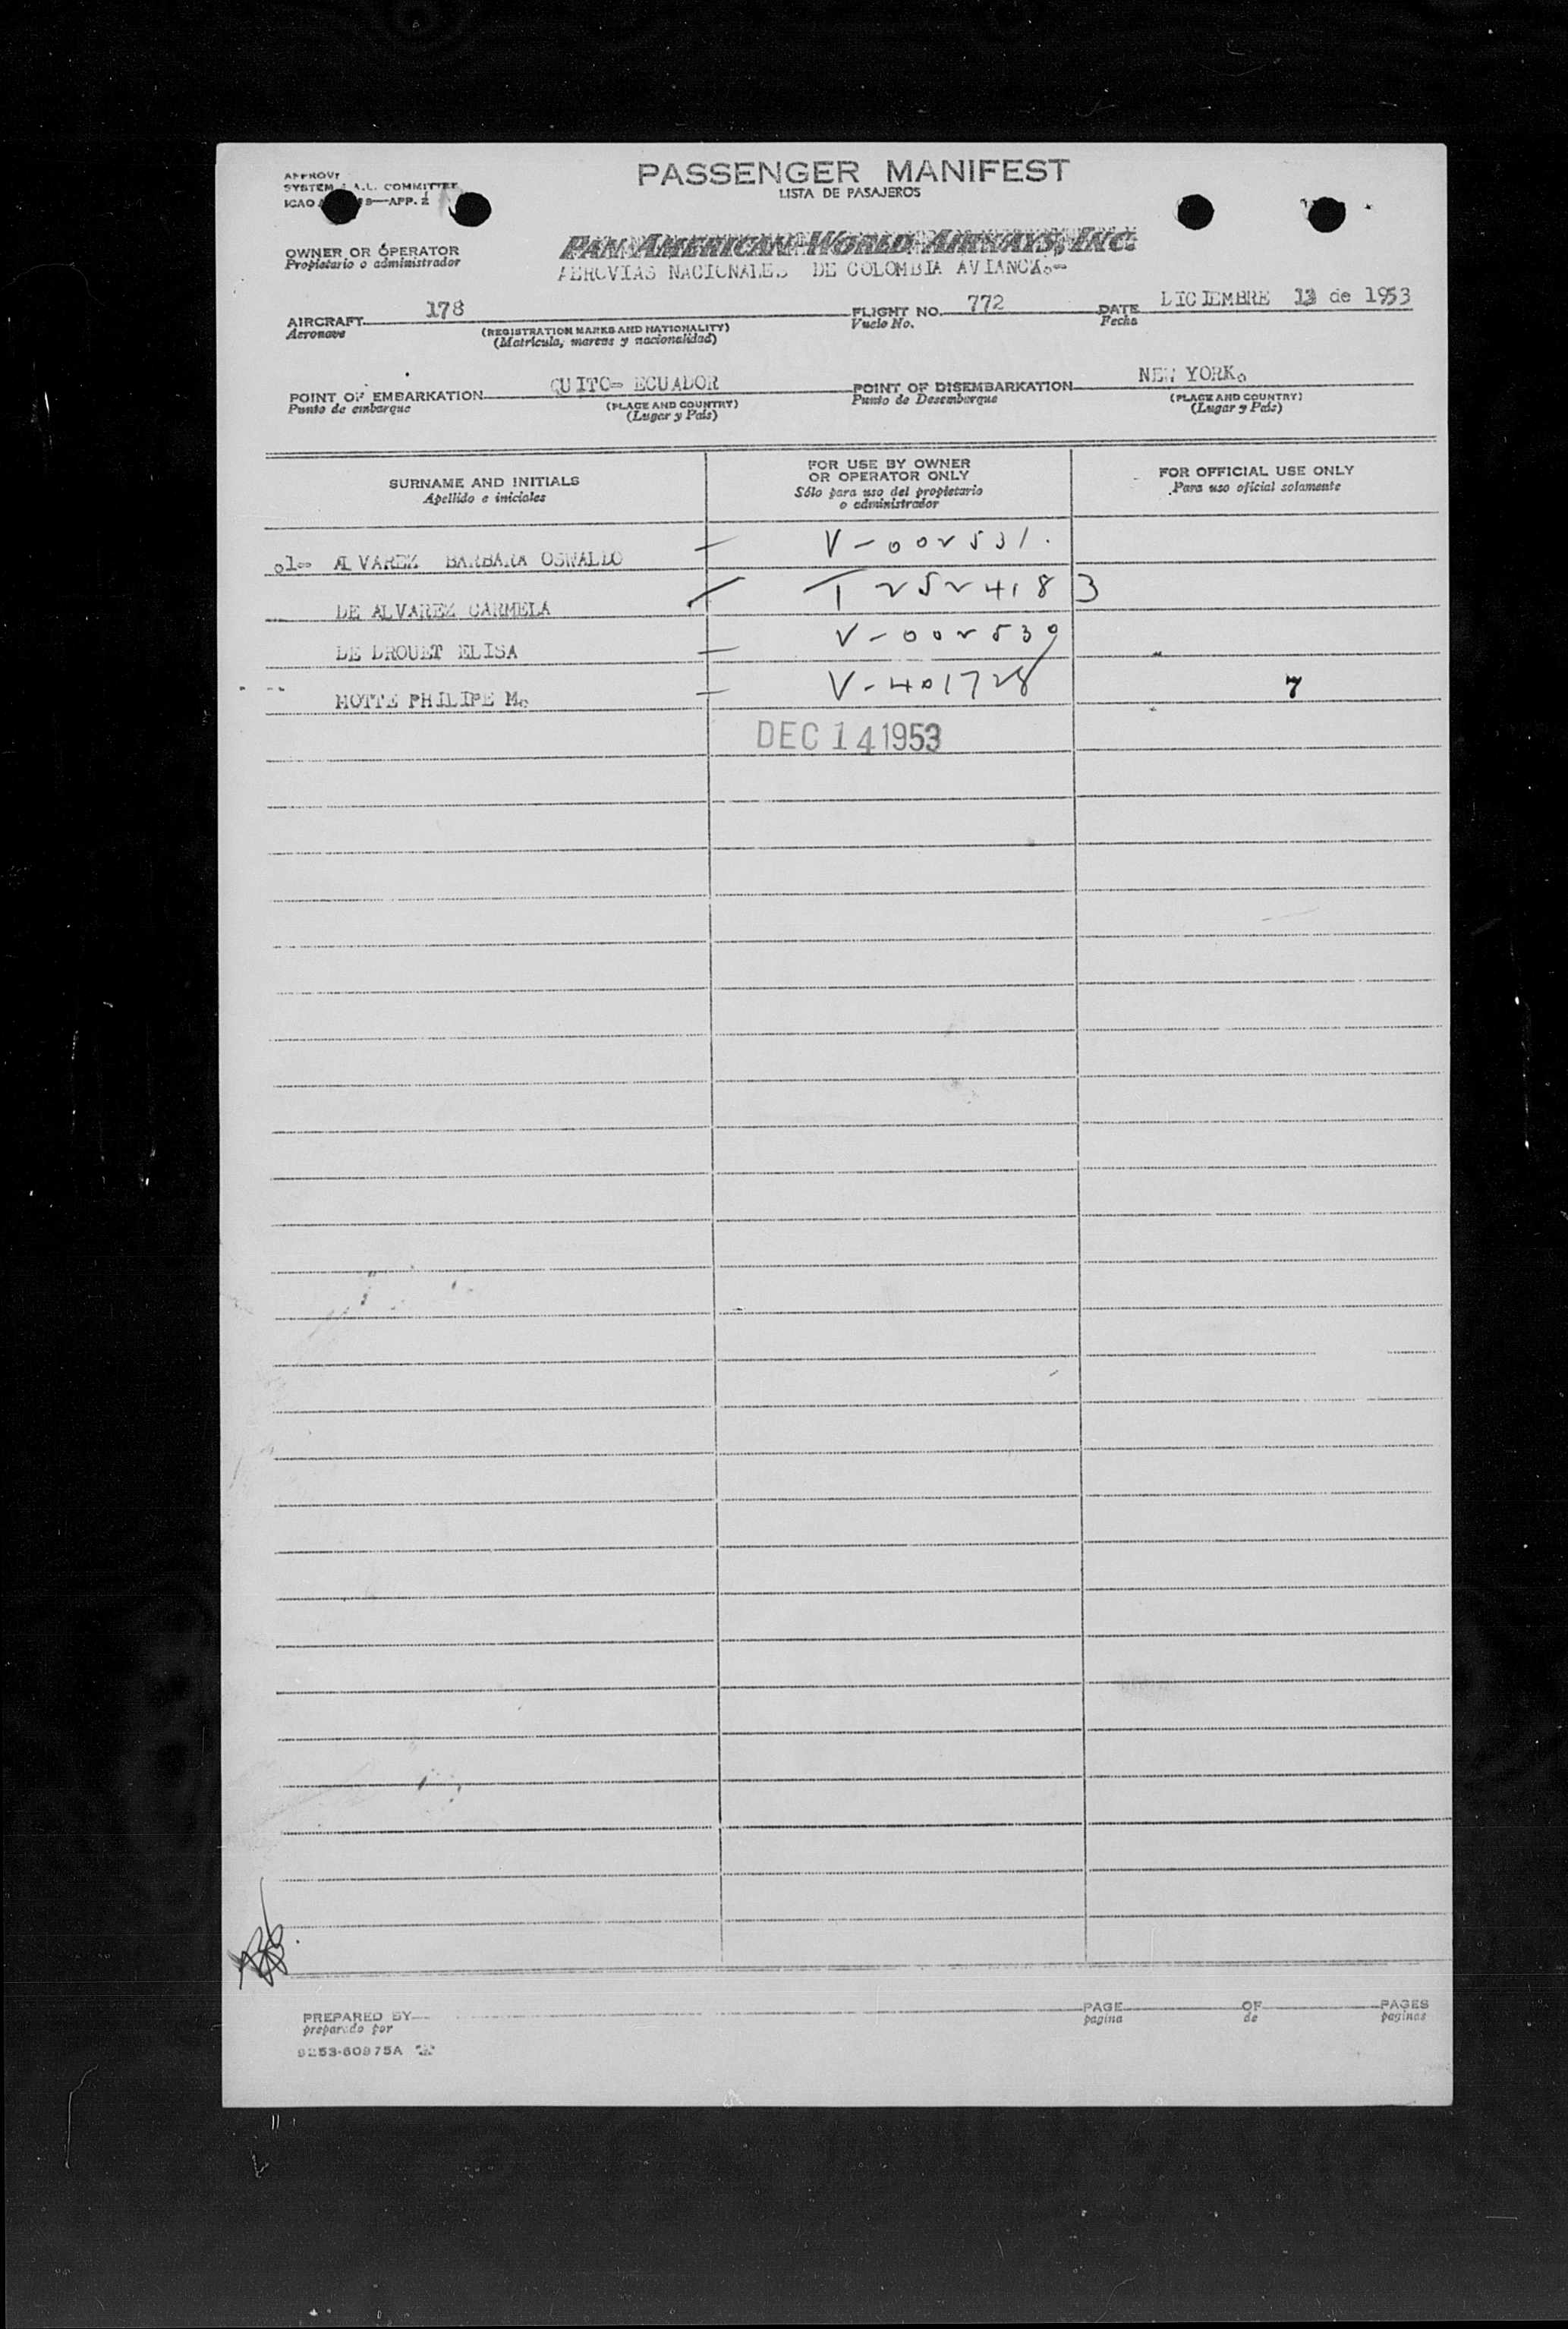 PASSENGER MANIFEST
LISTA DE PASAJEROS
SYSTEM A.L. COMMITTEE
ICAO 9—APP. 2
OWNER OR OPERATOR
Propietario o administrador
PAN AMERICAN WORLD AIRWAYS, INC.
AEROVIAS NACIONALES DE COLOMBIA AVIANCA.-
AIRCRAFT 178
Aeronave
(REGISTRATION MARKS AND NATIONALITY)
(Matrícula, marcas y nacionalidad)
FLIGHT NO. 772
Vuelo No.
DATE DICIEMBRE 13 de 1953
Fecha
POINT OF EMBARKATION QUITO- ECUADOR
Punto de embarque
(PLACE AND COUNTRY)
(Lugar y País)
POINT OF DISEMBARKATION NEW YORK.
Punto de Desembarque
(PLACE AND COUNTRY)
(Lugar y País)
SURNAME AND INITIALS
Apellido e iniciales
FOR USE BY OWNER
OR OPERATOR ONLY
Sólo para uso del propietario
o administrador
FOR OFFICIAL USE ONLY
Para uso oficial solamente
.1- ALVAREZ BARBARA OSWALDO — V-002531.
DE ALVAREZ CARMELA T 2524183
DE DROUET ELISA — V-002539
MOTTE PHILIPE M. — V-401728 7
DEC 14 1953
PREPARED BY
preparado por
PAGE OF PAGES
pagina de paginas
9253-60975A